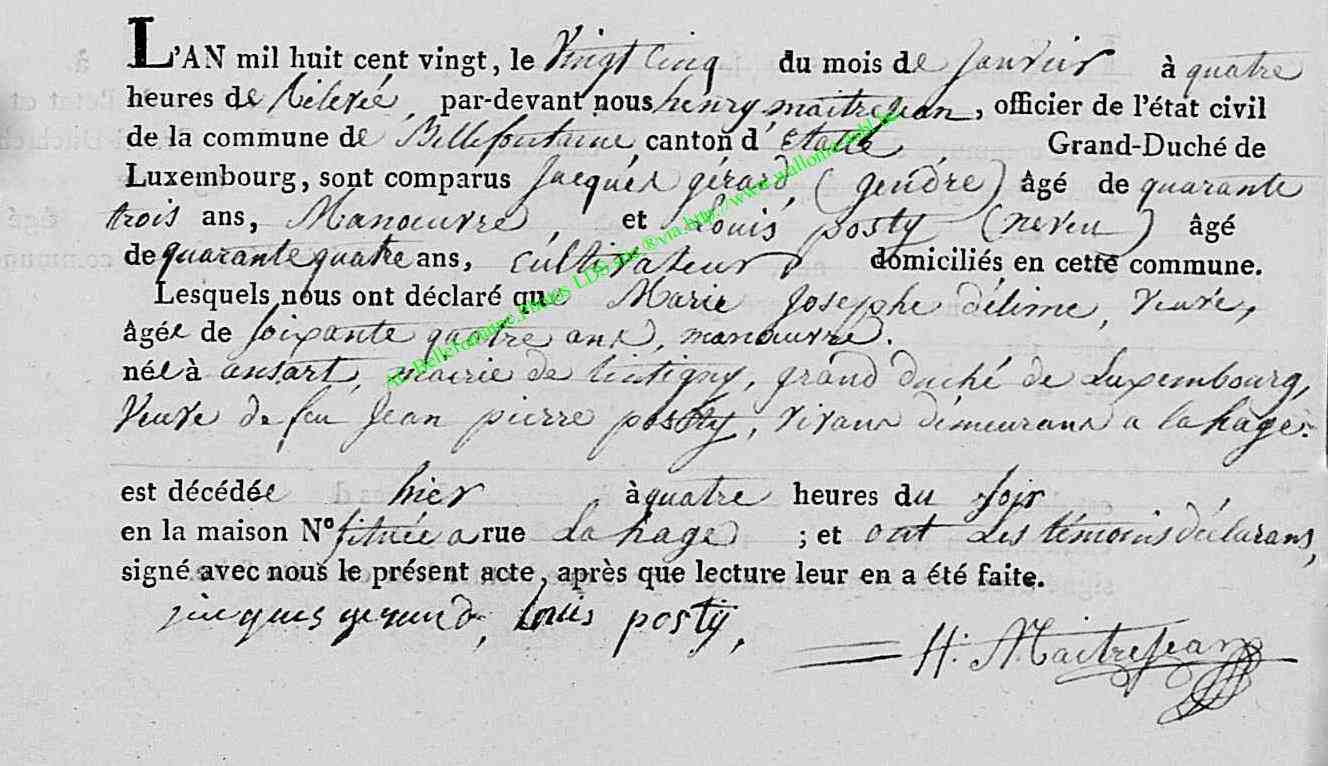 L'AN mil huit cent vingt, le Vingt Cinq du mois de janvier à quatre
heures de relevée, par-devant nous henry maitrejean, officier de l'état civil
de la commune de Bellefontaine, canton d'Etalle, Grand-Duché de
Luxembourg, sont comparus jacques gérard, (gendre) âgé de quarante
trois ans, Manoeuvre, et Louis posty (neveu) âgé
de quarante quatre ans, cultivateur domiciliés en cette commune.
Lesquels nous ont déclaré que Marie Josephe délime, veuve,
âgée de soixante quatre ans, manoeuvre.
née à ansart, mairie de tintigny, grand duché de Luxembourg,
veuve de feu Jean pierre posty, vivans demeurans a lahage.
est décédée hier à quatre heures du soir
en la maison N° située a rue Lahage ; et ont Les témoins déclarans,
signé avec nous le présent acte, après que lecture leur en a été faite.
jacques gerard, louis posty,
H. Maitrejean